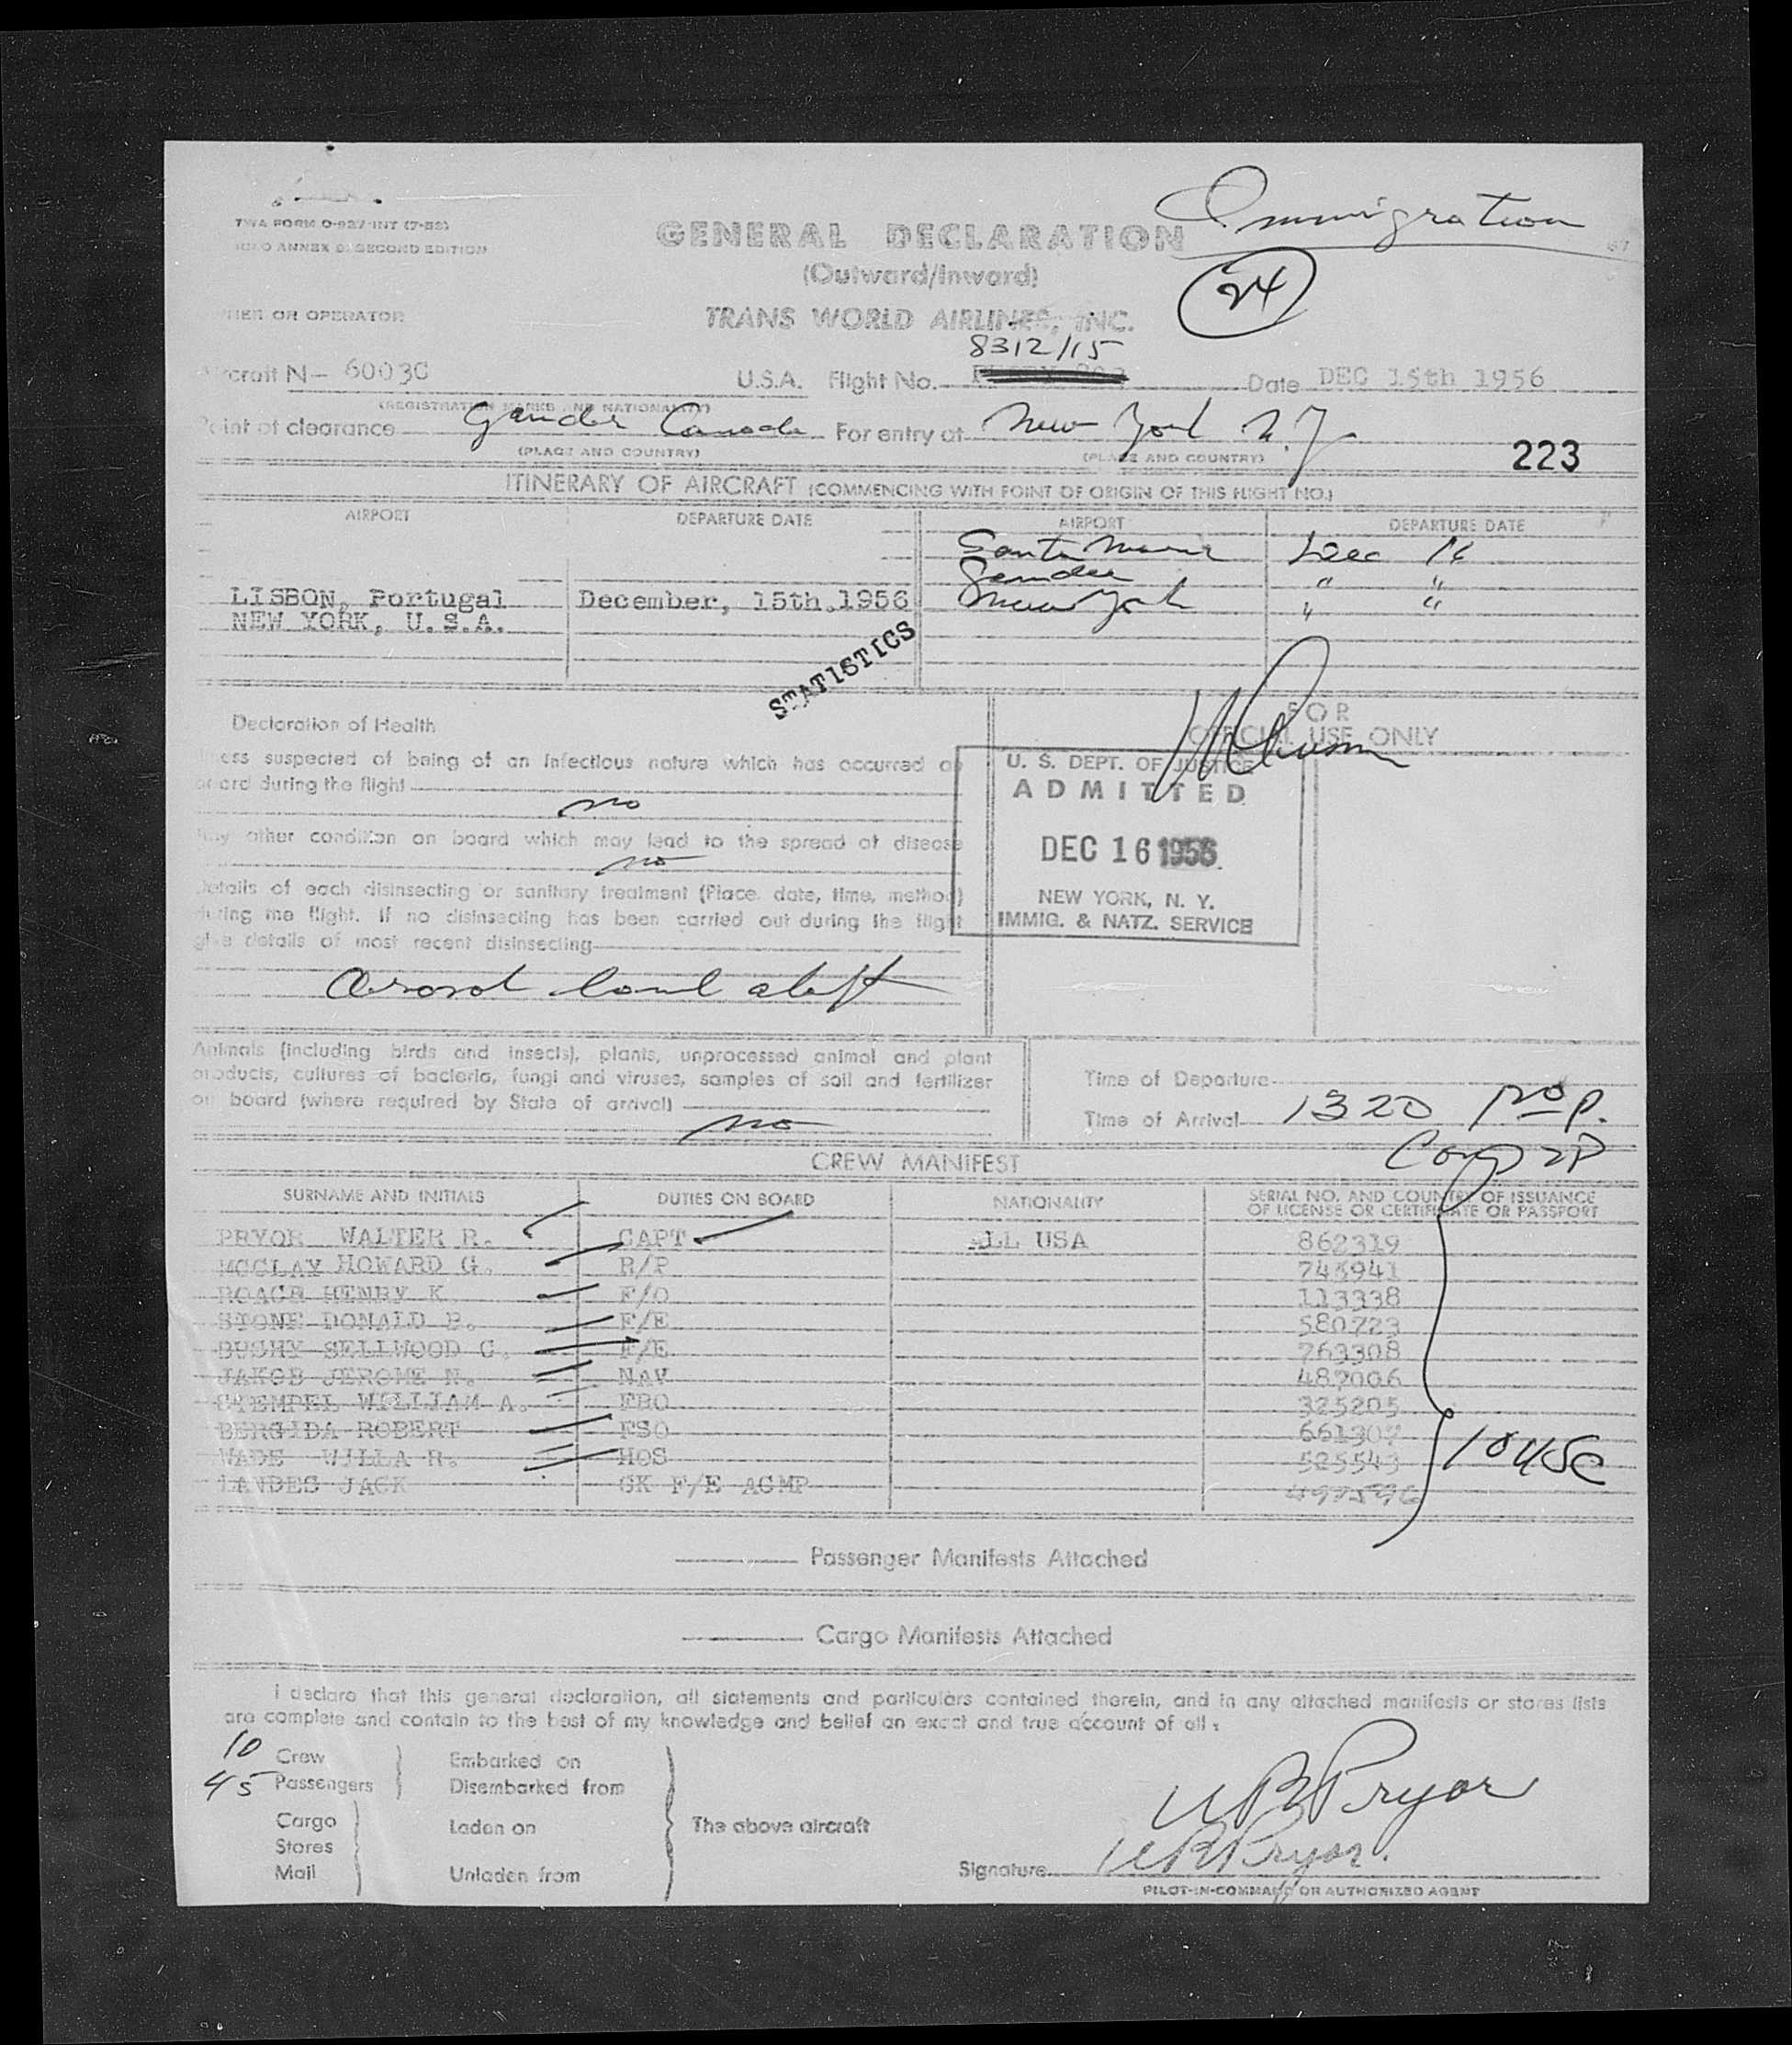 Immigration
TWA FORM O-927-INT (7-52)
ANNEX 9, SECOND EDITION
GENERAL DECLARATION
(Outward/Inward)
24
OR OPERATOR
TRANS WORLD AIRLINES, INC.
8312/15
Aircraft N- 6003C U.S.A. Flight No. Date DEC 15th 1956
(REGISTRATION MARKS AND NATIONALITY)
Point of clearance Gander Canada For entry at New York N.Y
(PLACE AND COUNTRY) (PLACE AND COUNTRY)
223
ITINERARY OF AIRCRAFT (COMMENCING WITH POINT OF ORIGIN OF THIS FLIGHT NO.)
AIRPORT DEPARTURE DATE AIRPORT DEPARTURE DATE
Santa Maria Dec 16
Gander " "
LISBON, Portugal December, 15th.1956 New York " "
NEW YORK, U.S.A.
STATISTICS
Declaration of Health
FOR
OFFICIAL USE ONLY
Illness suspected of being of an infectious nature which has occurred on
board during the flight
no
Any other condition on board which may lead to the spread of disease
no
Details of each disinsecting or sanitary treatment (Place, date, time, method)
during the flight. If no disinsecting has been carried out during the flight
give details of most recent disinsecting
U. S. DEPT. OF JUSTICE
ADMITTED
DEC 16 1956
NEW YORK, N. Y.
IMMIG. & NATZ. SERVICE
Aerosol bomb aloft
Animals (including birds and insects), plants, unprocessed animal and plant
products, cultures of bacteria, fungi and viruses, samples of soil and fertilizer
on board (where required by State of arrival)
no
Time of Departure
Time of Arrival 1320
CREW MANIFEST
SURNAME AND INITIALS DUTIES ON BOARD NATIONALITY SERIAL NO. AND COUNTRY OF ISSUANCE
OF LICENSE OR CERTIFICATE OR PASSPORT
PRYOR WALTER R. CAPT ALL USA 862319
MCCLAY HOWARD G. R/P 745941
ROACH HENRY K F/O 113338
STONE DONALD B. F/E 580723
BUSHY SELLWOOD C. F/E 763308
JAKOB JEROME N. NAV 487006
STEMPEL WILLIAM A. FRO 325205
BERGIDA ROBERT FSO 661307
WADE WILLA R. HOS 525543
LANDES JACK CK F/E ACMP 497596
10 USC
Passenger Manifests Attached
Cargo Manifests Attached
I declare that this general declaration, all statements and particulars contained therein, and in any attached manifests or stores lists
are complete and contain to the best of my knowledge and belief an exact and true account of all:
10 Crew Embarked on
45 Passengers Disembarked from
Cargo Laden on The above aircraft
Stores
Mail Unladen from
WRPryor
Signature WRPryor.
PILOT-IN-COMMAND OR AUTHORIZED AGENT